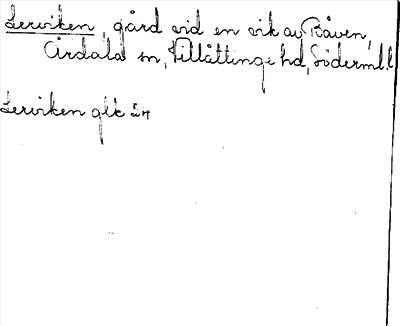 Lerviken, gård vid en vik av Båven,
Årdala sn, Villåttinge hd, Söderml. l
Lerviken glk